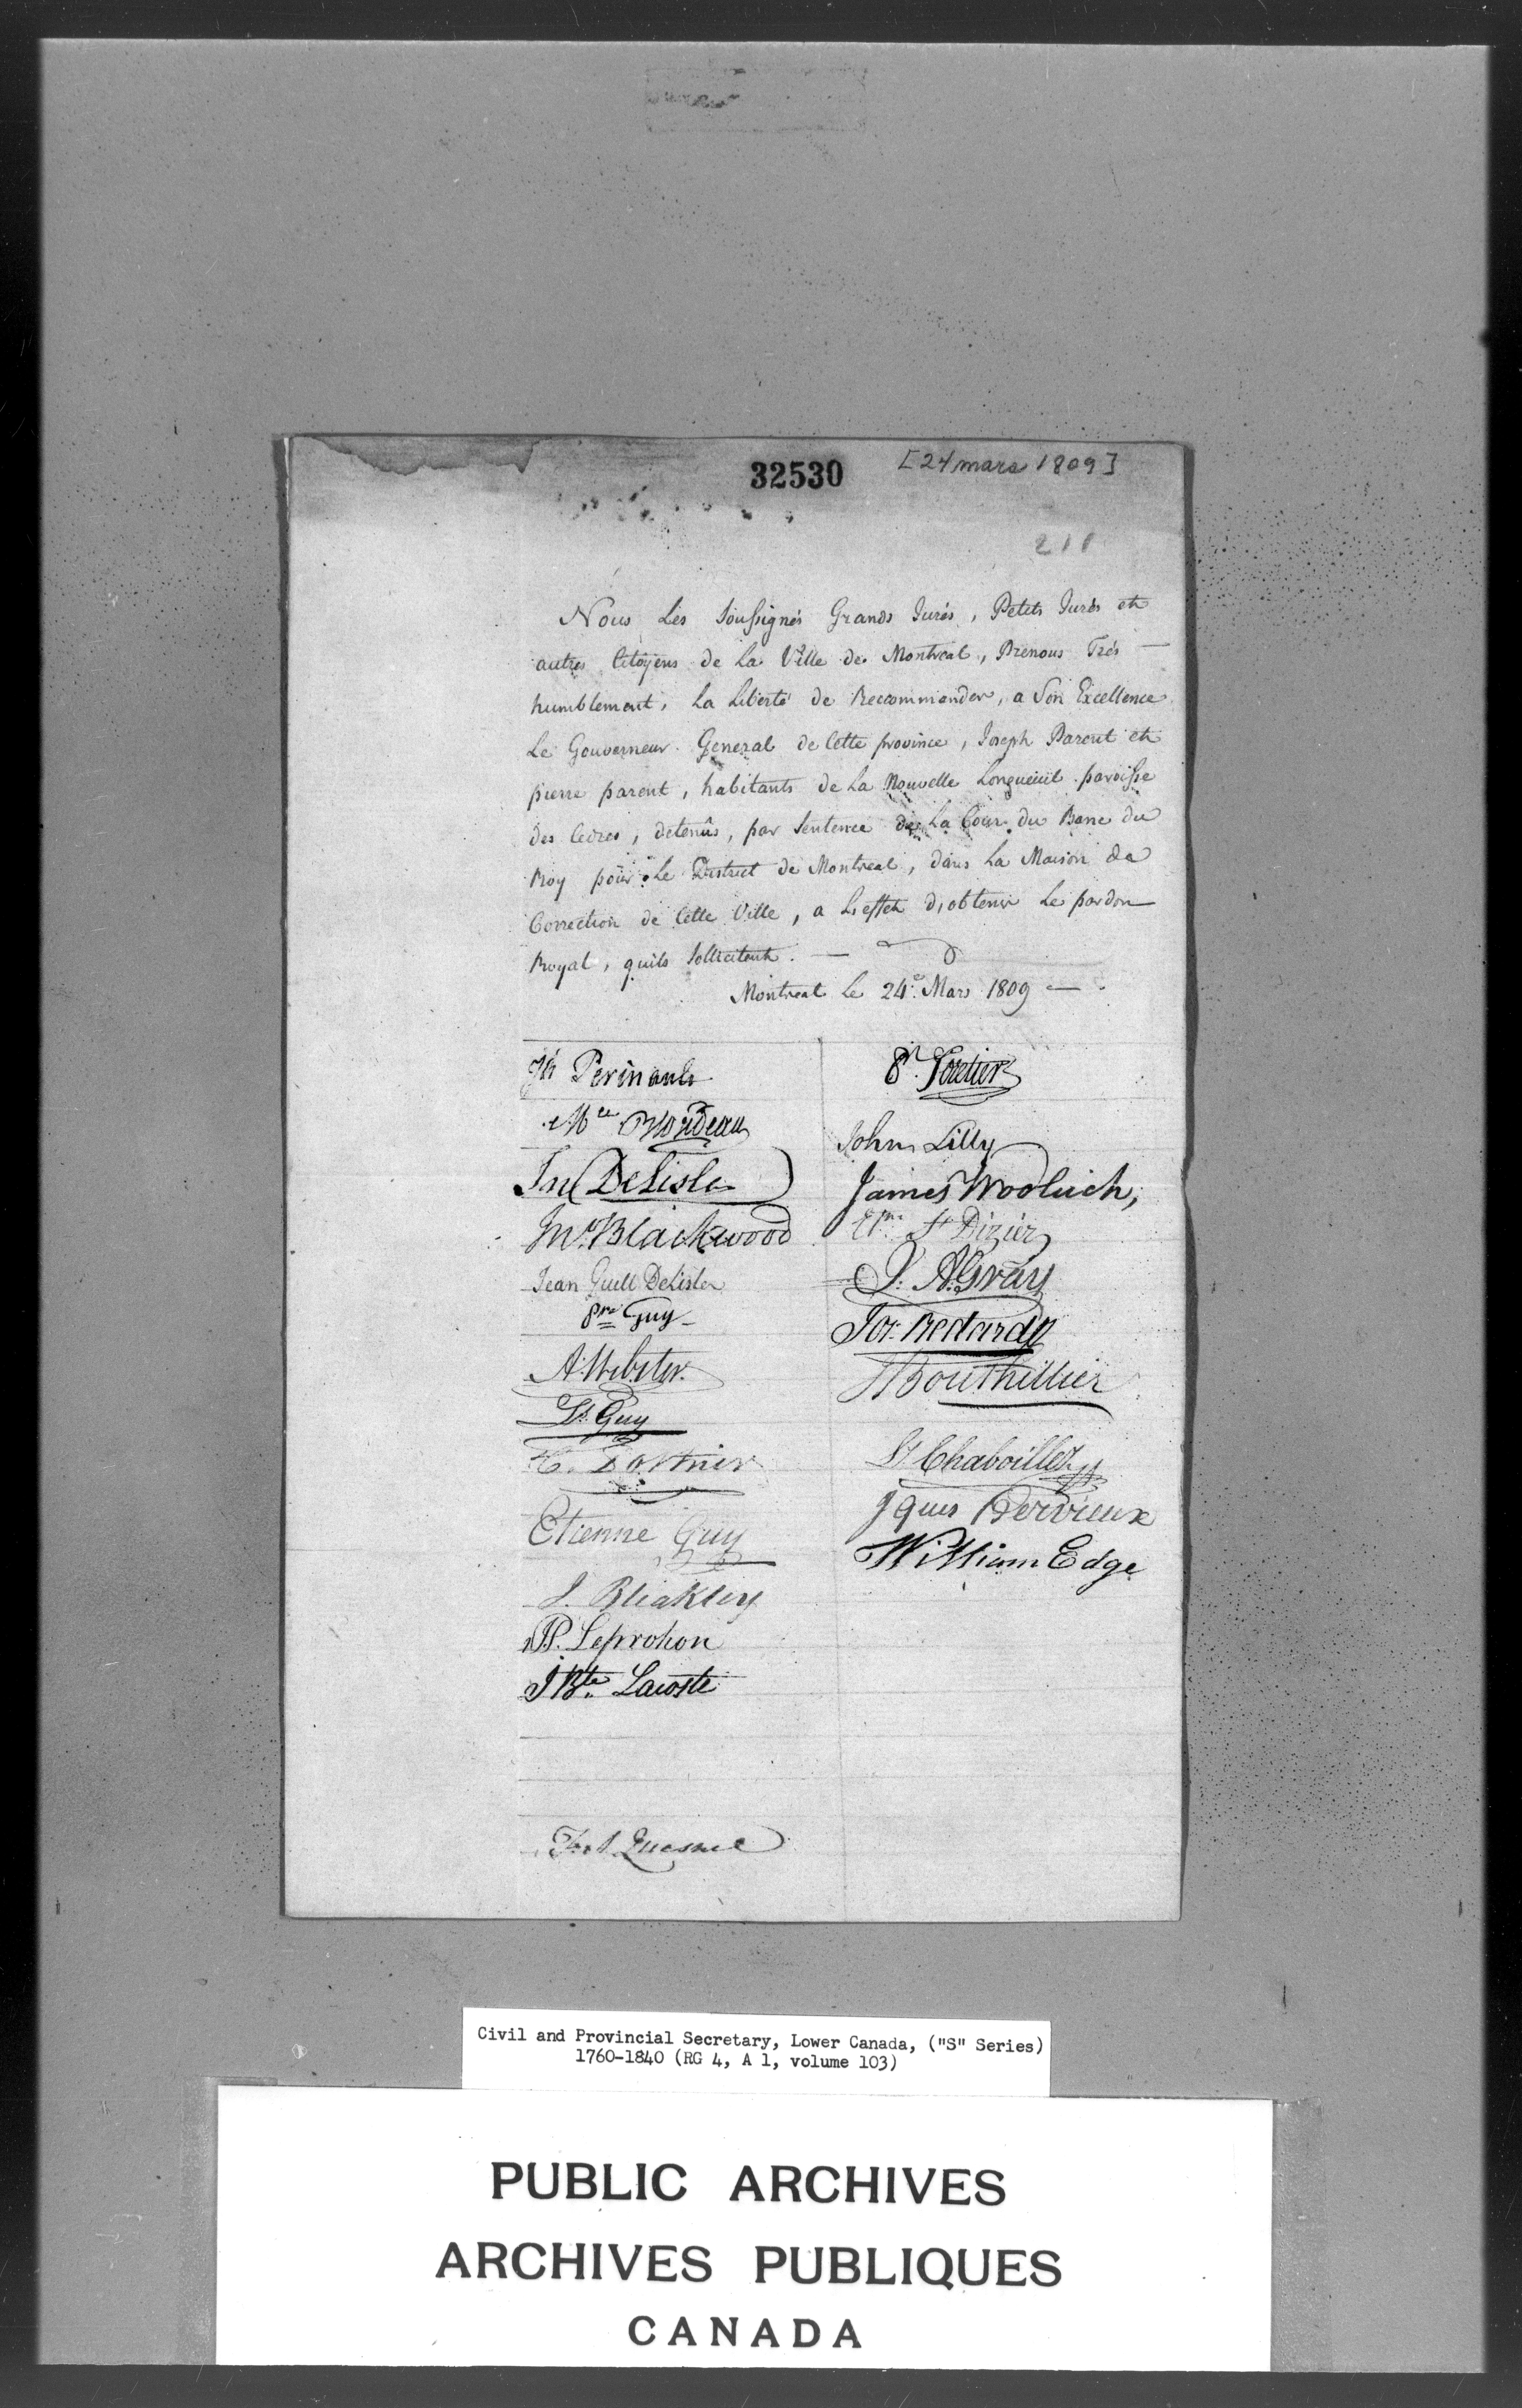 32530
[24 mars 1809]
211
Nous Les Soussignés Grands Jurés, Petits Jurés et
autres Citoyens de La Ville de Montreal, Prenons Trés —
humblement, La Liberté de Reccommander, a Son Excellence
Le Gouverneur General de Cette province, Joseph Parent et
pierre parent, habitants de La Nouvelle Longueuil paroisse
des Cedres, detenûs, par Sentence de La Cour du Banc du
Roy pour Le District de Montreal, dans La Maison de
Correction de Cette Ville, a L'effet d'obtenir Le pardon
Royal, quils Sollicitent. —
Montreal Le 24e. Mars 1809 —
Jh Perinault
Mce Blondeau
Jn DeLisle
Jno. Blackwood
Jean Guill DeLisle
Pre Guy
A. Webster
Ls. Guy
Etienne Guy
J. Bleakley
P. Leprohon
J Bte. Lacoste
Quesnel
Pr. Foretier
John Lilly
James Woolrich,
Etne St Dizier
J. A. Gray
Jos. Bedard
Bouthillier
Ls Chaboillez
Jques Hervieux
William Edge
Civil and Provincial Secretary, Lower Canada, ("S" Series)
1760-1840 (RG 4, A 1, volume 103)
PUBLIC ARCHIVES
ARCHIVES PUBLIQUES
CANADA